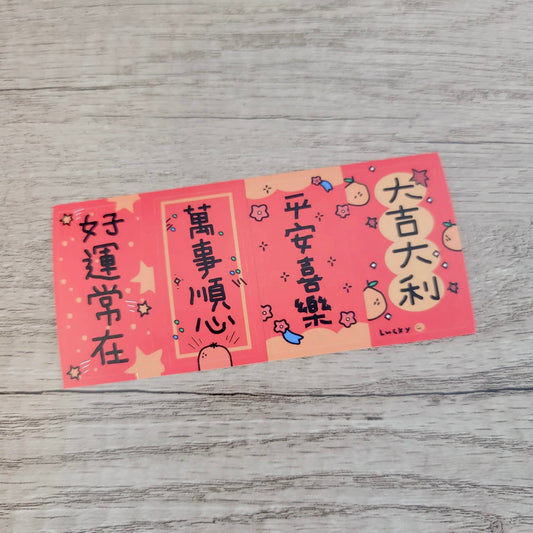 好運常在
萬事順心
平安喜樂
大吉大利
Lucky